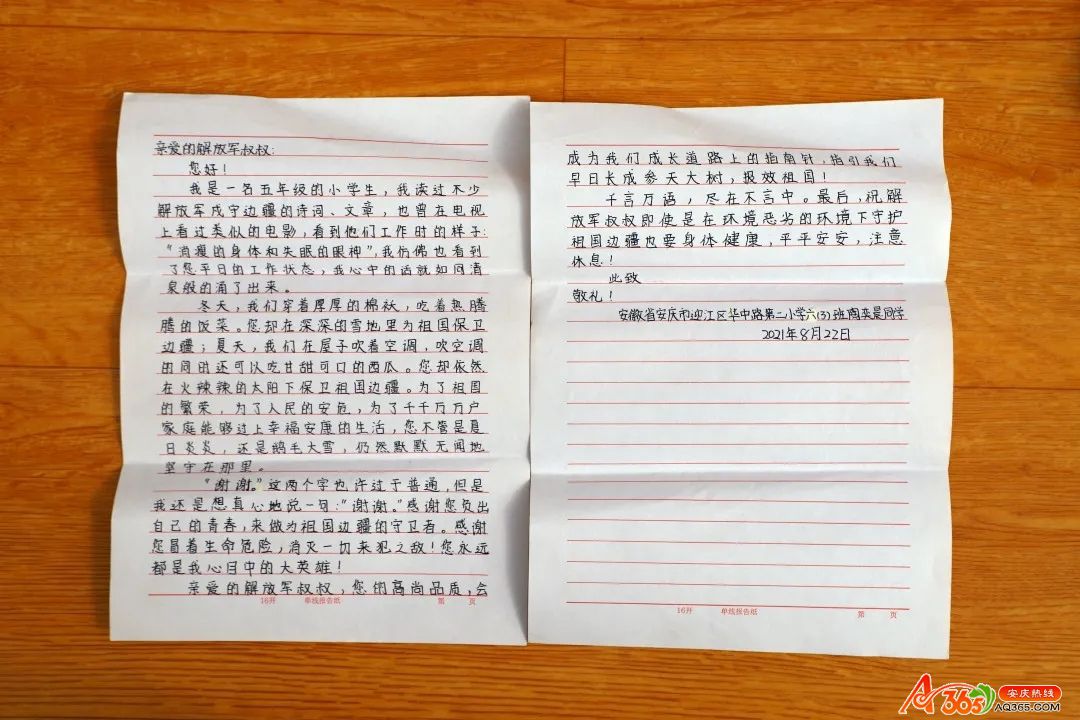 亲爱的解放军叔叔：
您好！
我是一名五年级的小学生，我读过不少
解放军戍守边疆的诗词、文章，也曾在电视
上看过类似的电影，看到他们工作时的样子：
“消瘦的身体和失眠的眼神”，我仿佛也看到
了您平日的工作状态，我心中的话就如同清
泉般的涌了出来。
冬天，我们穿着厚厚的棉袄，吃着热腾
腾的饭菜。您却在深深的雪地里为祖国保卫
边疆；夏天，我们在屋子吹着空调，吹空调
的同时还可以吃甘甜可口的西瓜。您却依然
在火辣辣的太阳下保卫祖国边疆。为了祖国
的繁荣，为了人民的安危，为了千千万万户
家庭能够过上幸福安康的生活，您不管是夏
日炎炎，还是鹅毛大雪，仍然默默无闻地
坚守在那里。
“谢谢。”这两个字也许过于普通，但是
我还是想真心地说一句：“谢谢。”感谢您负出
自己的青春，来做为祖国边疆的守卫者。感谢
您冒着生命危险，消灭一切来犯之敌！您永远
都是我心目中的大英雄！
亲爱的解放军叔叔，您的高尚品质，会
16开 单线报告纸 第 页
成为我们成长道路上的指南针，指引我们
早日长成参天大树，报效祖国！
千言万语，尽在不言中。最后，祝解
放军叔叔即使是在环境恶劣的环境下守护
祖国边疆也要身体健康，平平安安，注意
休息！
此致
敬礼！
安徽省安庆市迎江区华中路第二小学六(3)班陶奕是同学
2021年8月22日
16开 单线报告纸 第 页
A365 安庆热线
AQ365.COM